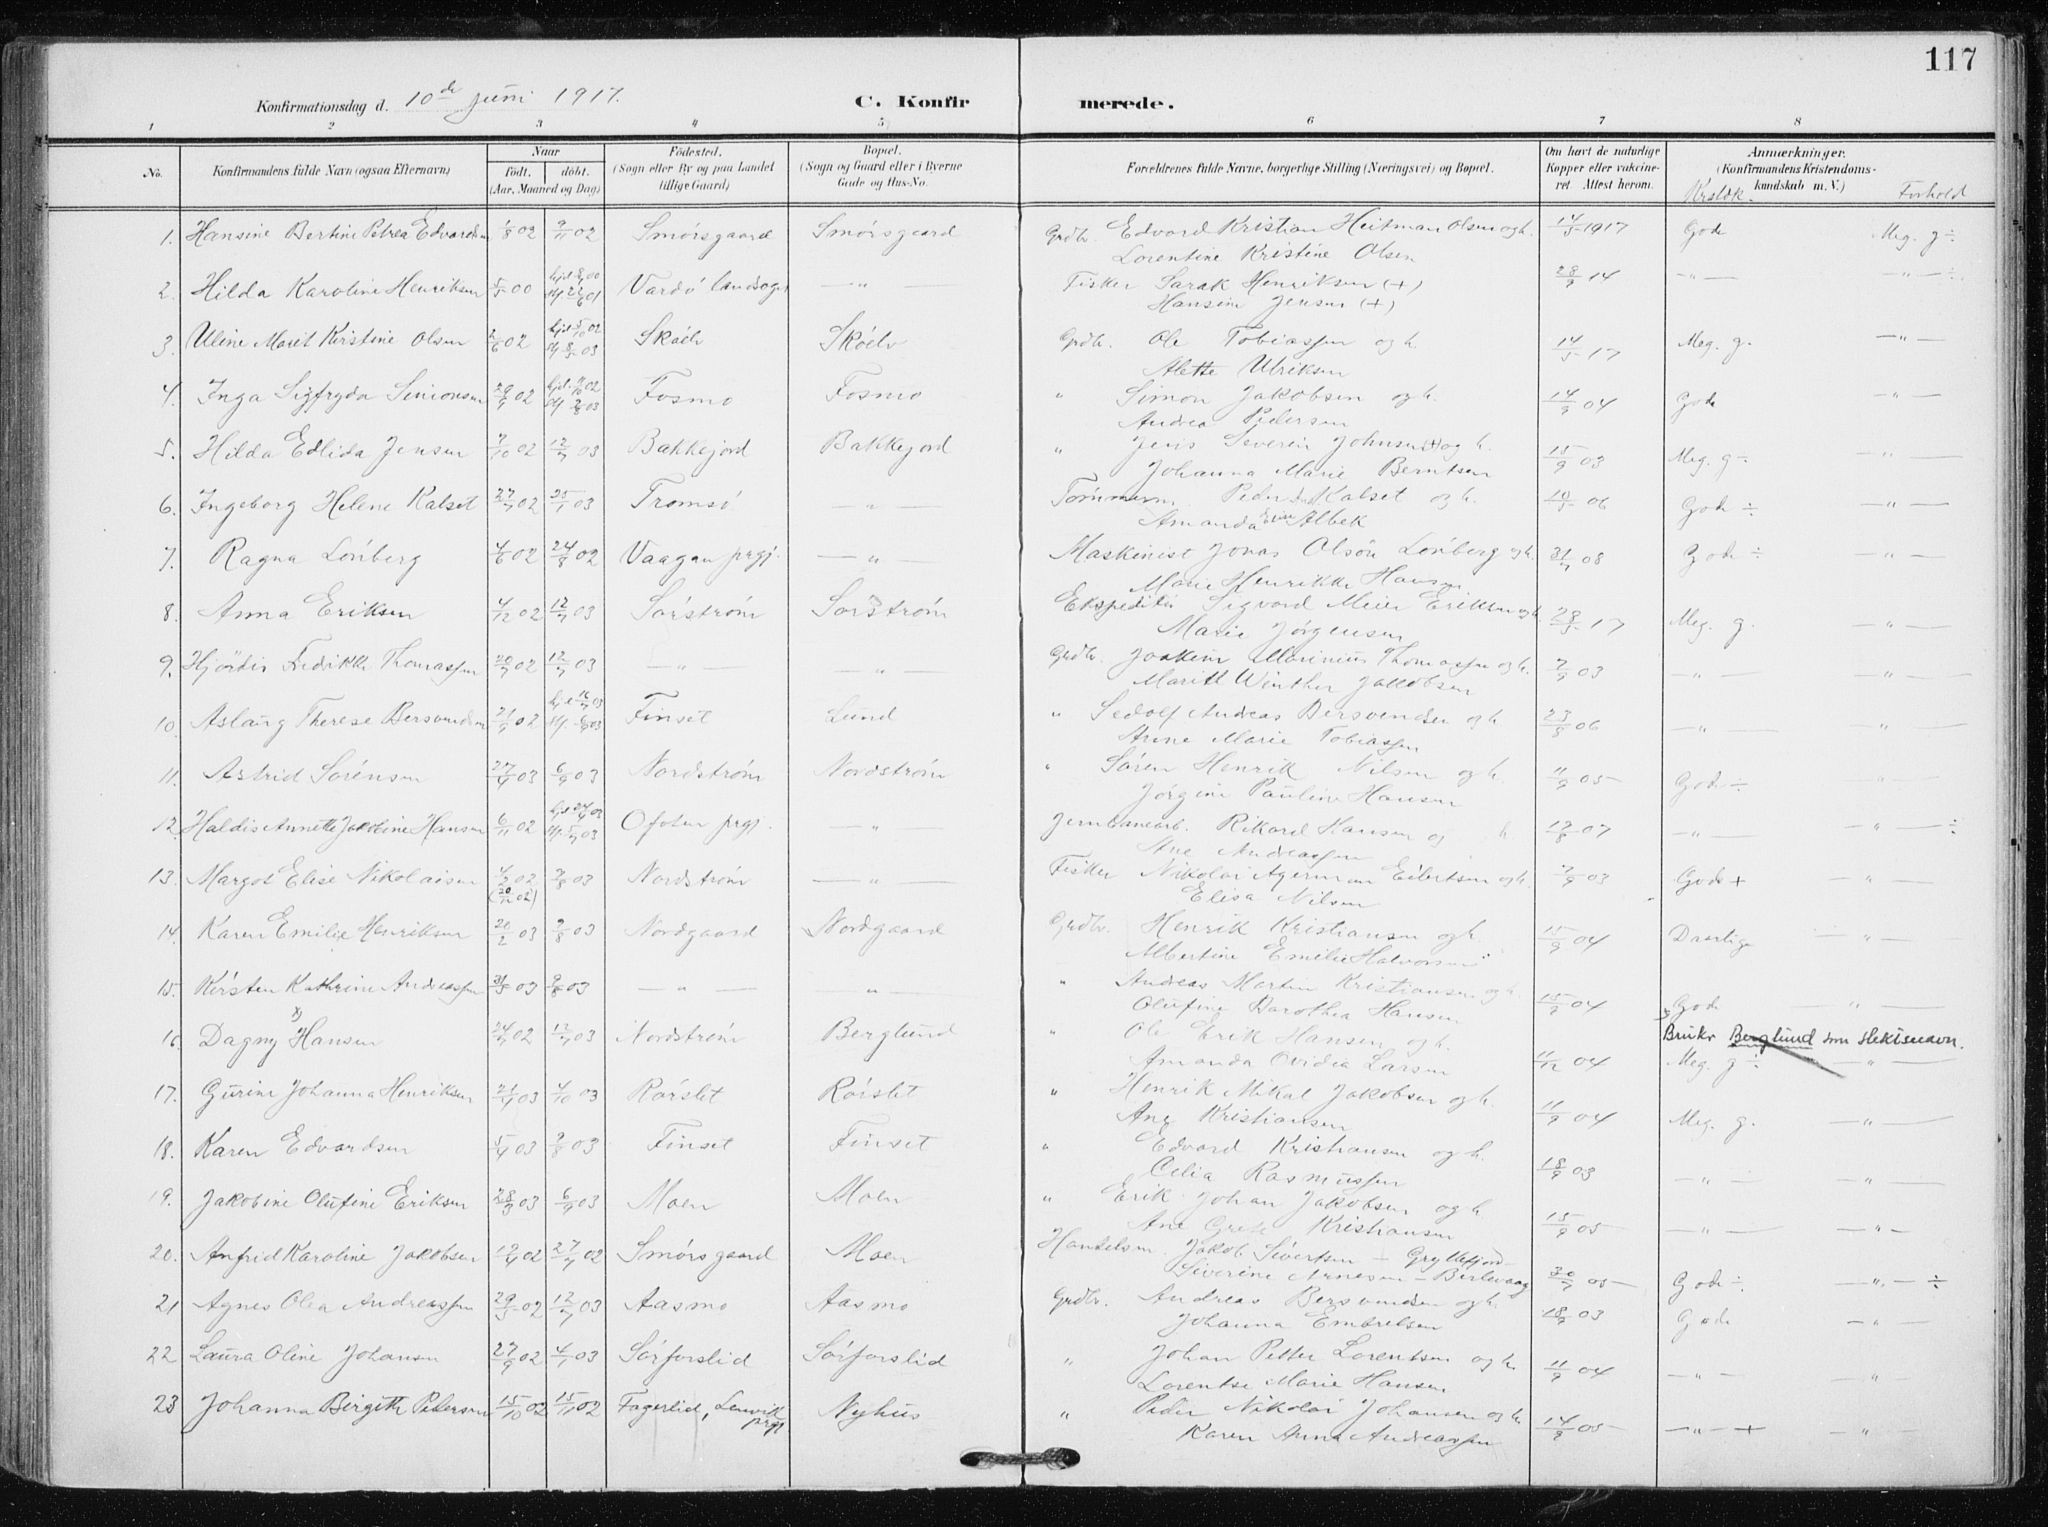 117
Konfirmationsdag d. 10de Juni 1917. C. Konfir merede.
1 2 3 4 5 6 7 8
No. Konfirmandens fulde Navn (ogsaa Efternavn) Naar født. døbt. (Aar, Maaned og Dag) Fødested. (Sogn eller By og paa Landet tillige Gaard) Bopæl. (Sogn og Gaard eller i Byerne Gade og Hus-No. Forældrenes fulde Navne, borgerlige Stilling (Næringsvei) og Bopæl. Om havt de naturlige Kopper eller vaccineret Attest herom. Anmærkninger. (Konfirmandens Kristendomskundskab m. V.) Krstdk. Forhold
1. Hansine Bertine Petrea Edvardsen 1/8 02 9/11 02 Smørsgaard Smørsgaard Grdbr. Edvard Kristian Heitman Olsen og h. 14/5 1917 Gode Meg. g ÷
Lorentine Kristine Olsen
2. Hilda Karoline Henriksen 5/5 00 Vardø landsogn —„— Fisker Sarak Henriksen (+) 28/9 14 —„— —„— ÷
Hansine Jensen (+)
3. Uline Marit Kristine Olsen 2/6 02 Skøelv Skøelv Grdbr. Ole Tobiassen og h. 14/5 17 Meg. g. —„—
Alette Ulriksen
4. Inga Sigfryda Simonsen Fosmo Fosmo „ Simon Jakobsen og h. 14/9 04 Gode —„—
Andrea Pedersen
5. Hilda Edlida Jensen 7/10 02 12/7 03 Bakkejord Bakkejord „ Jens Severin Johnsen (+) og h. 15/9 03 Meg. g ÷ —„—
Johanna Marie Berntsen
6. Ingeborg Helene Kalset 27/7 02 25/1 03 Tromsø —„— Tømmerm. Peder Kalset og h. 06 Gode ÷ —„—
Amanda Albek
7. Ragna Lønberg 4/6 02 24/8 02 Vaagan prgj. —„— Maskinist Jonas Olsøn Lønberg og h. 31/7 08 Gode ÷ —„—
Marie Henrikke Hansen
8. Anna Eriksen 4/12 02 12/7 03 Sørstrøm Sørstrøm Ekspeditør Sigvard Meier Eriksen og h. 28/5 17 Meg. g. —„—
Marie Jørgensen
9. Hjørdis Fredrikke Thomassen 20/7 02 12/7 03 —„— —„— Grdbr. Joakim Marinius Thomassen og h. 7/9 03 —„— —„—
Maritl Winther Jakobsen
10. Aslaug Therese Bersvendsen Finset Lund „ Sedolf Andreas Bersvendsen og h. 23/8 06 —„— „
Anne Marie Tobiassen
11. Astrid Sørensen 27/4 03 6/9 03 Nordstrøm Nordstrøm „ Søren Henrik Nilsen og h. 11/9 05 Gode ÷ —„—
Jørgine Pauline Hansen
12. Haldis Annette Jakobine Hansen 6/11 02 Ofoten prgj. —„— Jernbanearb. Rikard Hansen og h. 07 —„— —„— ÷
Ane Andreassen
13. Margot Elise Nikolaisen 02 9/8 03 Nordstrøm —„— Fisker Nikolai Agerman Eilertsen og h. 7/9 03 Gode + —„—
(20/12 02) Elisa Nilsen
14. Karen Emilie Henriksen 20/2 03 9/8 03 Nordgaard Nordgaard Grdbr. Henrik Kristiansen og h. 15/9 04 Daarlige —„—
Albertine Emilie Halvorsen
15. Kirsten Kathrine Andreassen 31/5 03 9/8 03 —„— —„— „ Andreas Martin Kristiansen og h. 15/9 04 Gode —„—
Olufine Dorothea Hansen
16. Dagny x) Hansen 24/7 02 12/7 03 Nordstrøm Berglund „ Ole Erik Hansen og h. Bruker Berglund som slektsnavn.
Amanda Ovidia Larsen 11/12 04 Meg. g ÷ „
17. Gurine Johanna Henriksen 21/1 03 4/10 03 Rørslet Rørslet „ Henrik Mikal Jakobsen og h. 11/9 04 Meg. g. —„—
Ane Kristiansen
18. Karen Edvardsen 5/4 03 9/8 03 Finset Finset „ Edvard Kristiansen og h. 18/9 03 —„— —„—
Celia Rasmussen
19. Jakobine Olufine Eriksen 28/3 03 6/9 03 Moen Moen „ Erik Johan Jakobsen og h. 15/9 05 —„— —„—
Ane Grete Kristiansen
20. Anfrid Karoline Jakobsen 02 27/7 02 Smørsgaard Moen Handelsm. Jakob Sivertsen – Gryllefjord – 30/7 05 Gode ÷ —„— ÷
Siverine Arnesen – Berlevaag
21 Agnes Olea Andreassen 29/5 02 12/7 03 Aasmo Aasmo Grdbr. Andreas Bersvendsen og h. 18/9 03 Gode —„—
Johanna Embretsen
22 Laura Oline Johansen 27/9 02 4/1 03 Sørforslid Sørforslid „ Johan Petter Lorentsen og h. 11/9 04 —„— —„—
Lorentse Marie Hansen
23 Johanna Birgitte Pedersen 15/10 02 15/11 02 Fagerlid, Lenvik prgj Nyhus „ Peder Nikolai Johansen og h. 14/9 05 —„— + „
Karen Anna Andreassen